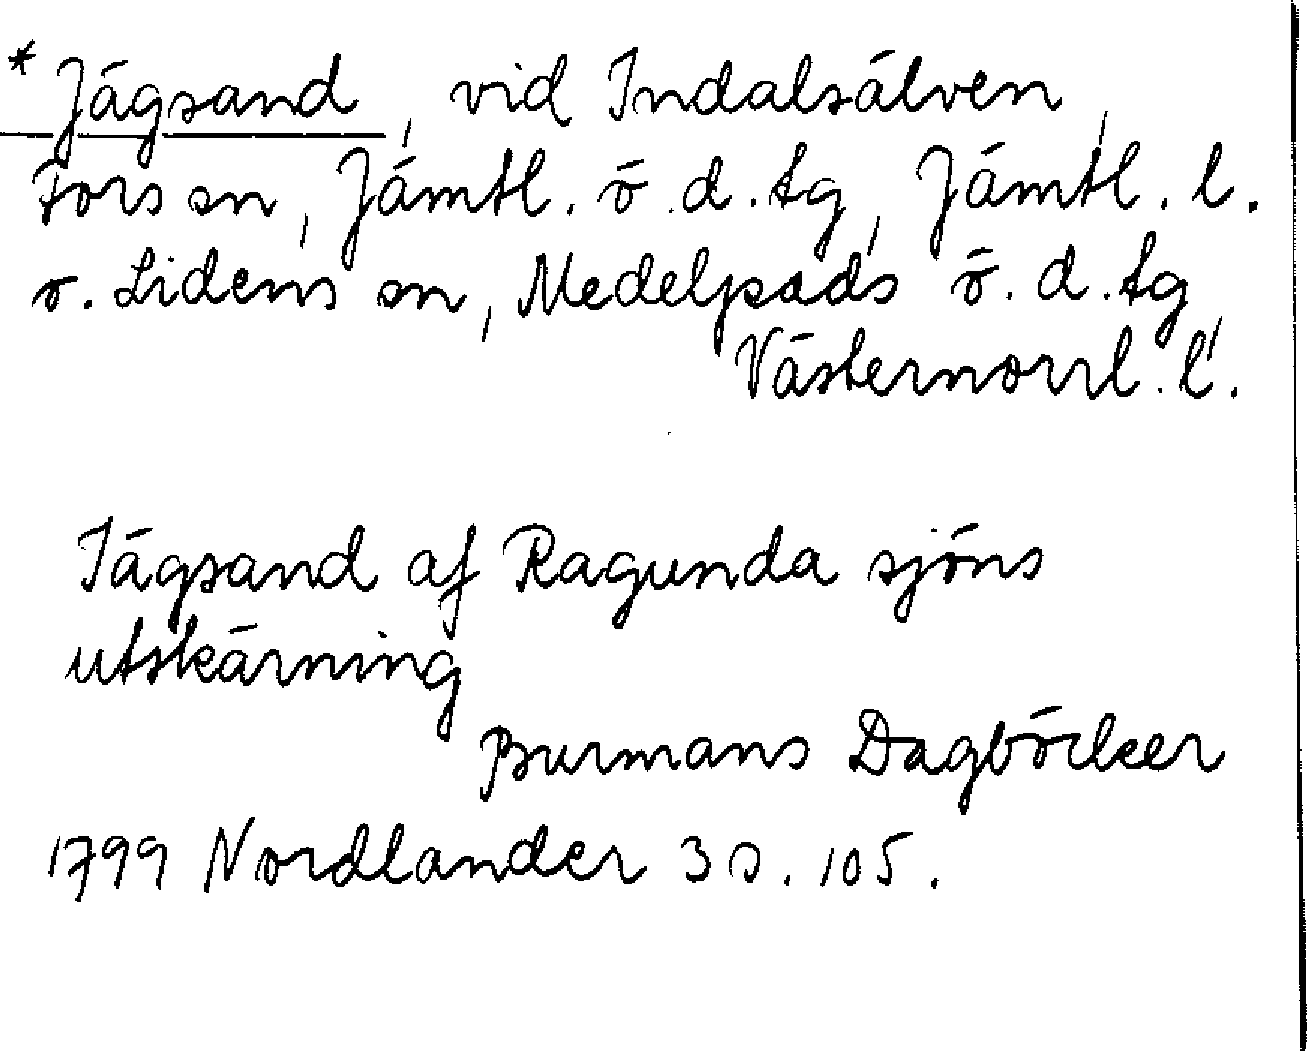 * Jägsand, vid Indalsälven,
Fors sn, Jämtl. ö. d. tg, Jämtl. l.
o. Lidens sn, Medelpads ö. d. tg,
Västernorrl. l.
Jägsand af Ragunda sjöns
utskärning
Burmans Dagböcker
1799 Nordlander 3 s. 105.